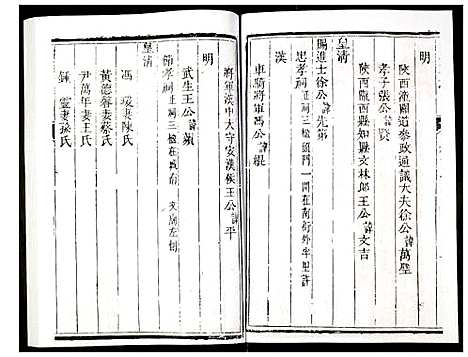 明
陝西潼關道參政通議大夫徐公諱萬璧
孝子張公諱
陝西隴西縣知縣文林郎王公諱文吉
皇清
賜進士徐公諱先第
忠孝祠正祠三楹頭門一間在南街外半里許
漢
車騎將軍馮公諱緄
將軍漢中太守安漢侯王公諱平
明
武生王公諱蘋
節孝祠正祠三楹在城南文廟左側
皇清
馮瑗妻陳氏
黃德馨妻蔡氏
尹萬年妻王氏
鍾靈妻孫氏